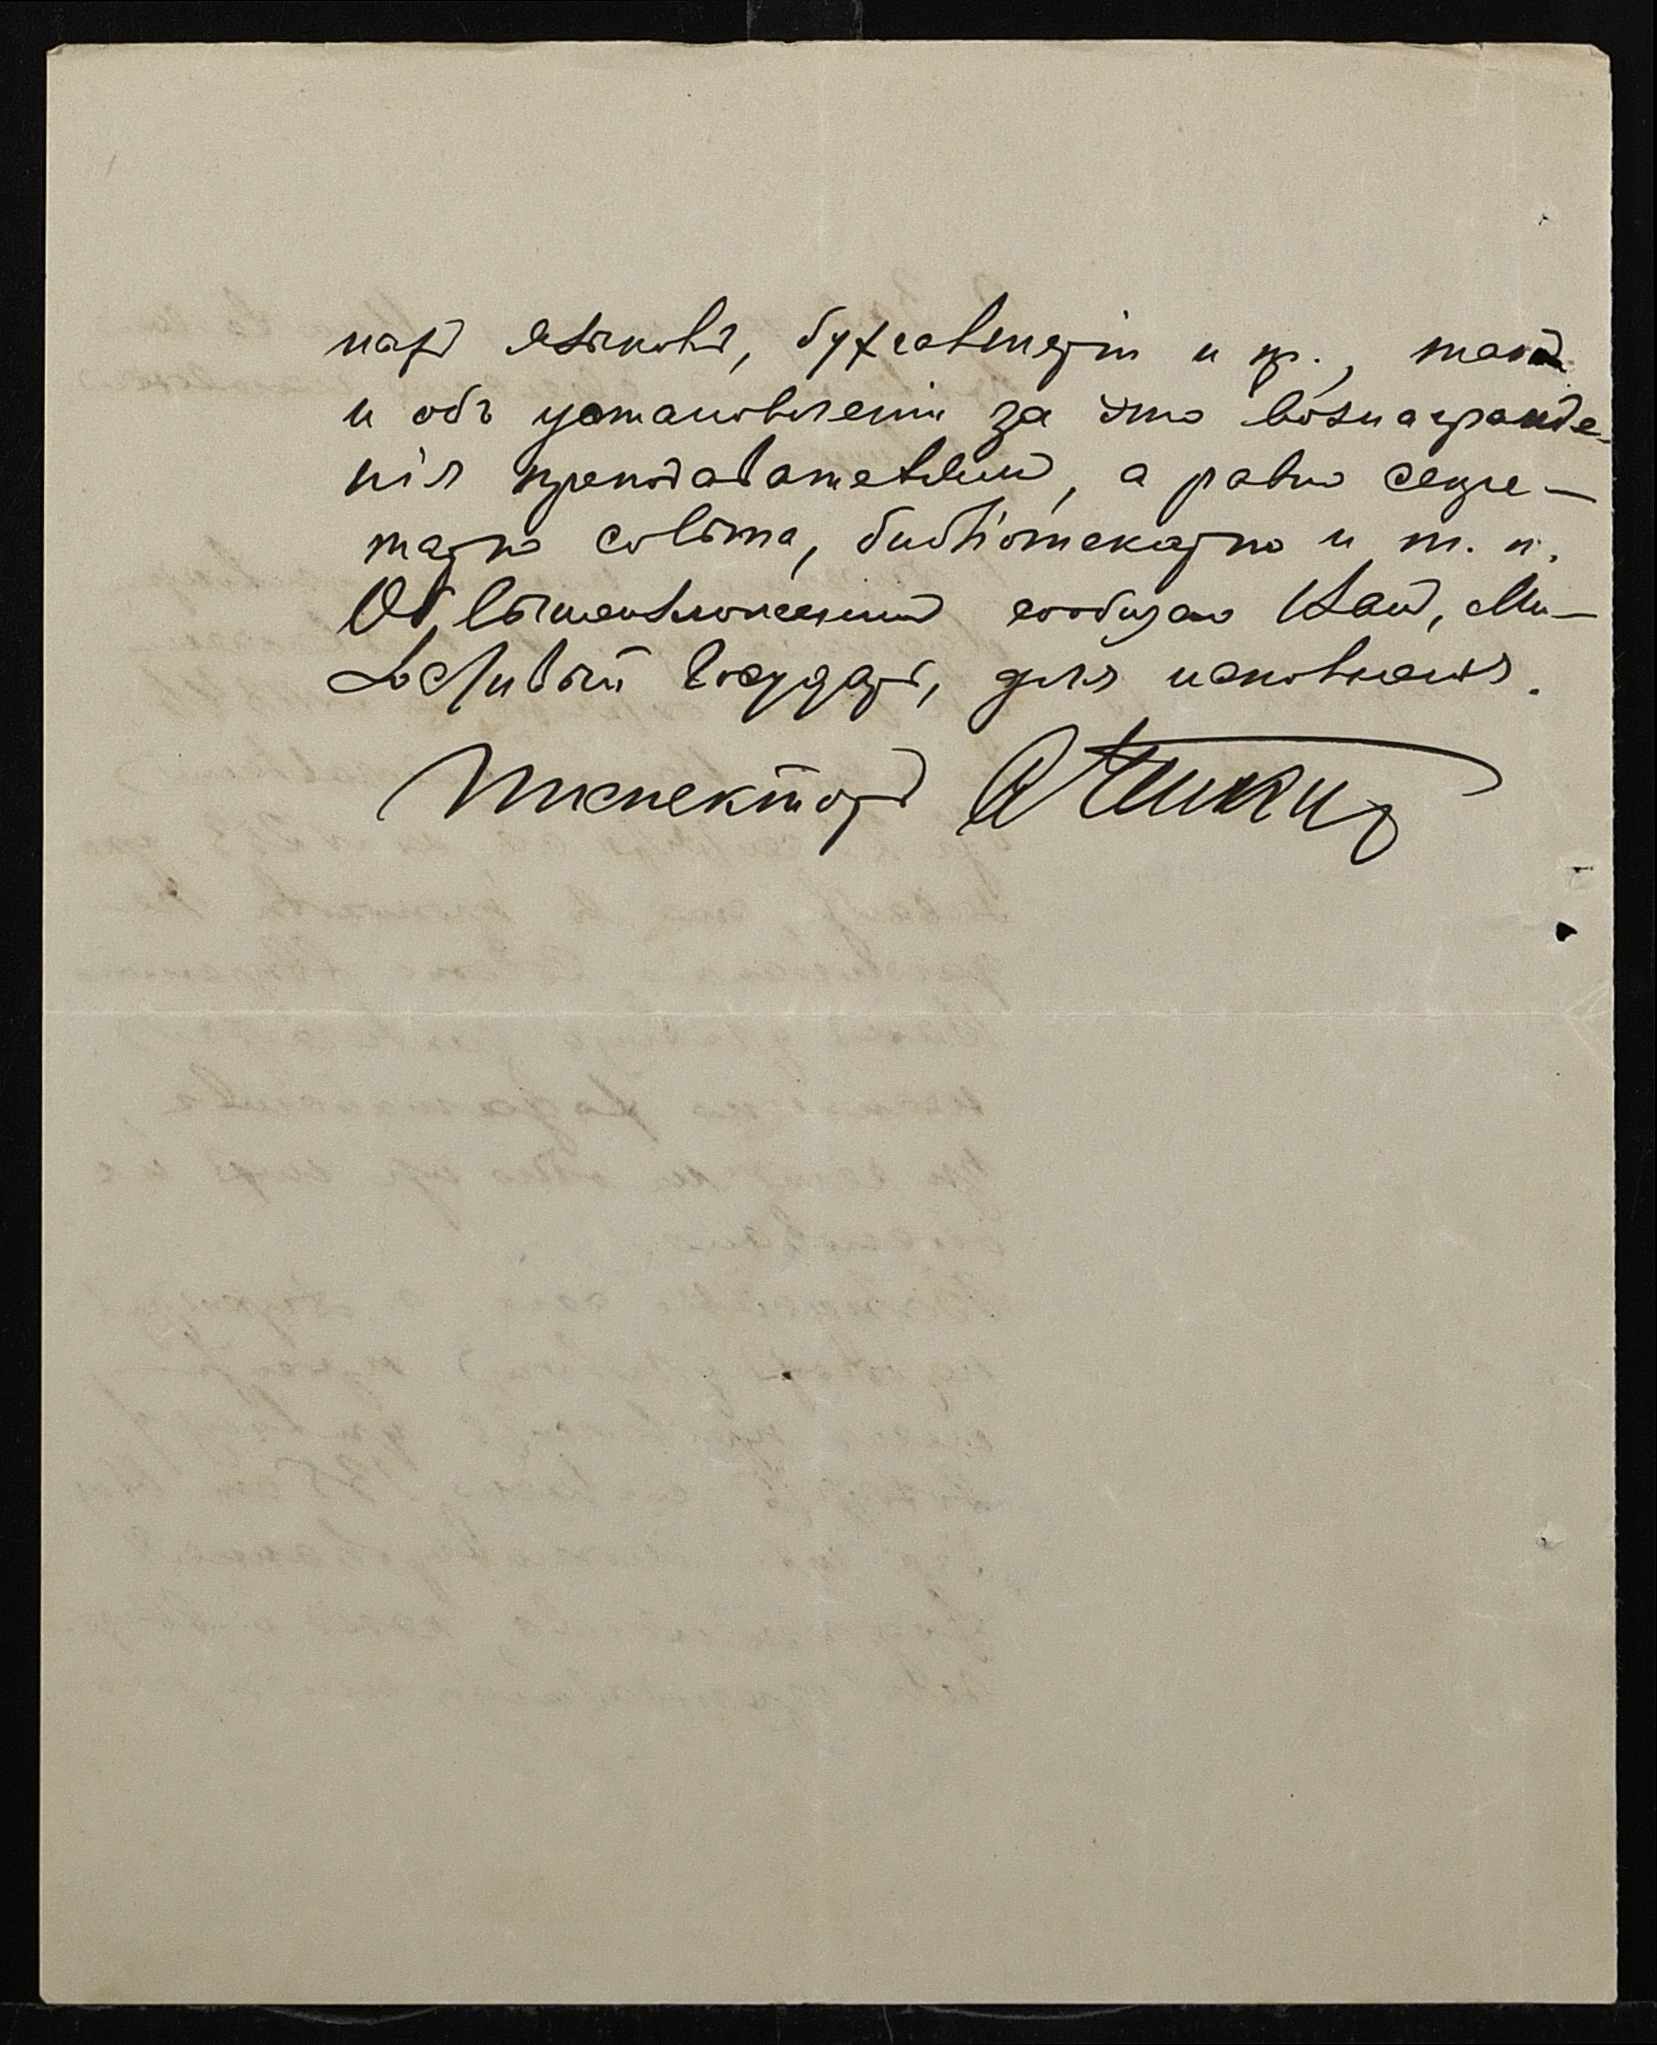 ныхъ языковъ, бухгалтеріи и пр., такъ
и объ установленіи за это вознагражде-
нія преподавателямъ, а равно секре-
тарю совѣта, библіотекарю и т. п.
Объ вышеизложенномъ сообщаю Вамъ, Ми-
лостивый Государь, для исполненія.
Инспекторъ